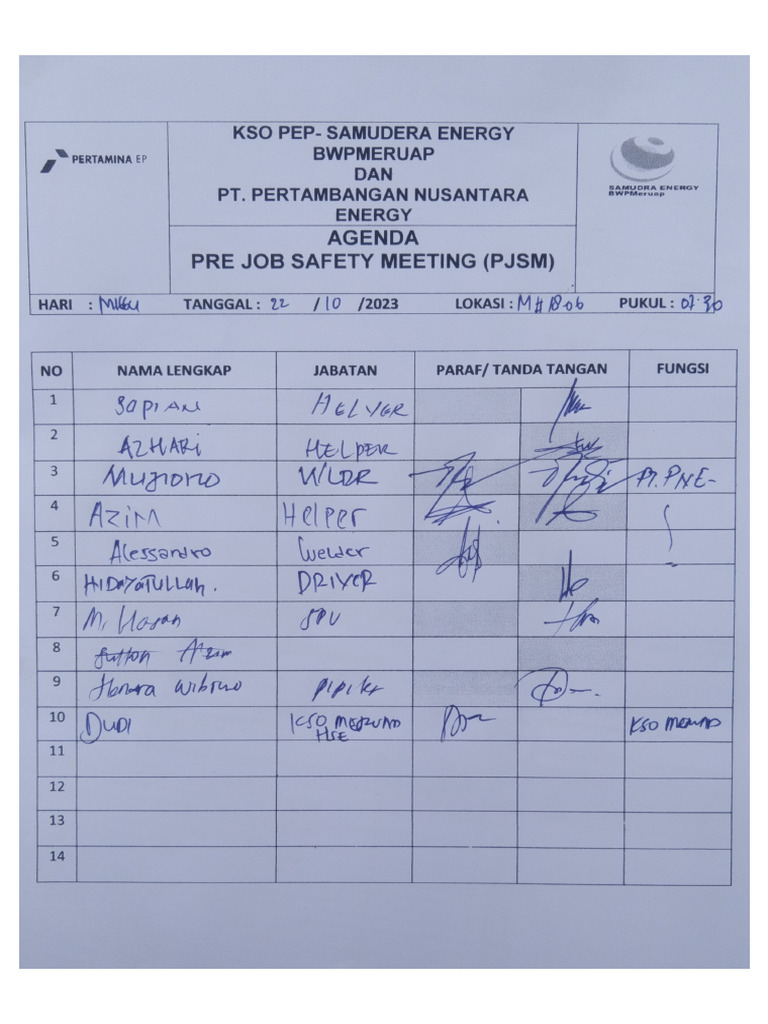 PERTAMINA EP
KSO PEP- SAMUDERA ENERGY
BWPMERUAP
DAN
PT. PERTAMBANGAN NUSANTARA
ENERGY
AGENDA
PRE JOB SAFETY MEETING (PJSM)
SAMUDRA ENERGY
BWPMeruap
HARI : MINGGU TANGGAL : 22 / 10 /2023 LOKASI : PUKUL : 07.30
NO NAMA LENGKAP JABATAN PARAF/ TANDA TANGAN FUNGSI
1 SOPIAN HELPER
2 AZHARI HELPER
3 Mugiono WLDR PT. PNE-
4 AZIM Helper
5 Alessandro Welder
6 HIDAYATULLAH. DRIVER
7 M. Hasan SPV
8
9
10 DUDI KSO MERUAP KSO MERUAP
HSE
11
12
13
14